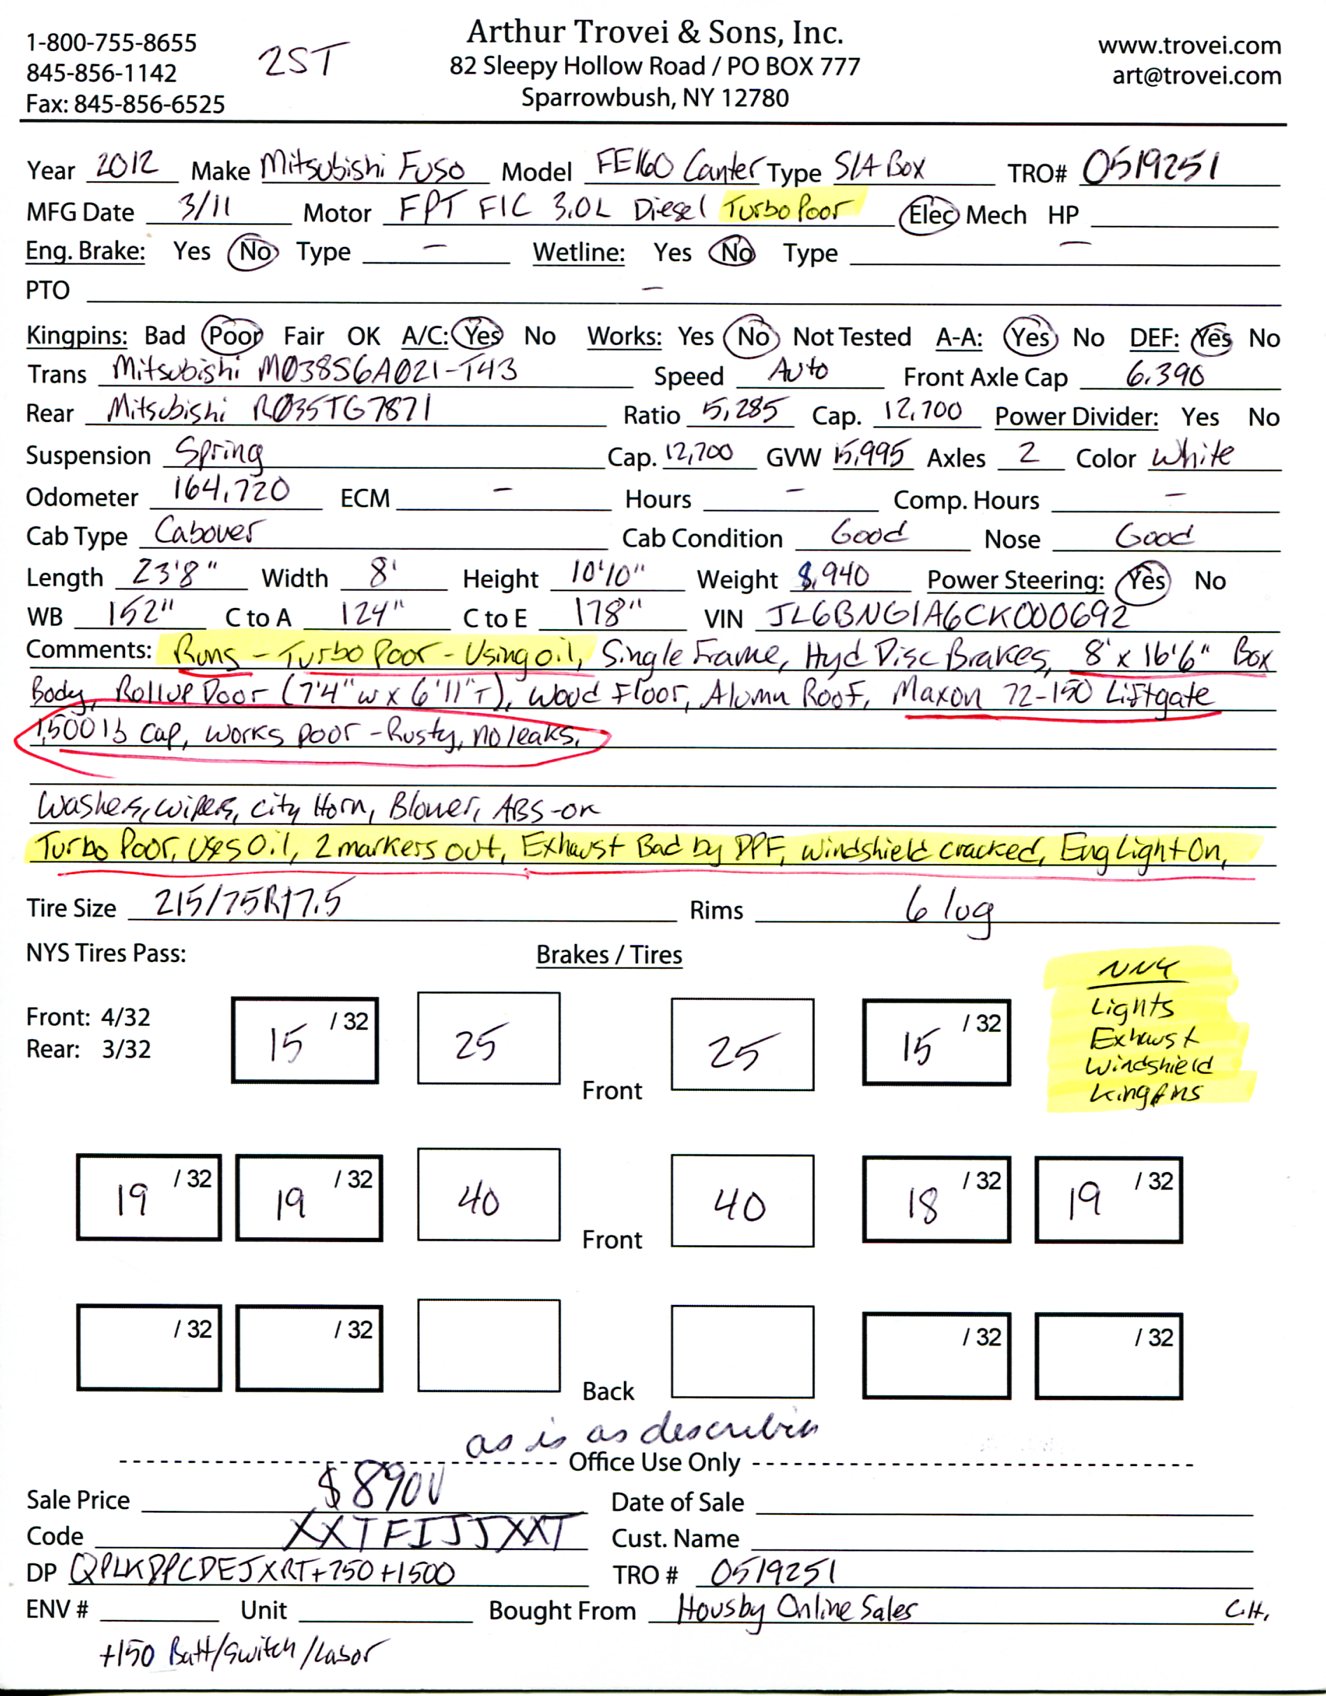 Arthur Trovei & Sons, Inc.
1-800-755-8655 2ST 82 Sleepy Hollow Road / PO BOX 777 www.trovei.com
845-856-1142 Sparrowbush, NY 12780 art@trovei.com
Fax: 845-856-6525
Year 2012 Make Mitsubishi Fuso Model FE160 Canter Type S/A Box TRO# 0519251
MFG Date 3/11 Motor FPT F1C 3.0L Diesel Turbo Poor Elec Mech HP
Eng. Brake: Yes No Type — Wetline: Yes No Type —
PTO —
Kingpins: Bad Poor Fair OK A/C: Yes No Works: Yes No Not Tested A-A: Yes No DEF: Yes No
Trans Mitsubishi M038S6A021-T43 Speed Auto Front Axle Cap 6,390
Rear Mitsubishi R035TG7871 Ratio 5,285 Cap. 12,700 Power Divider: Yes No
Suspension Spring Cap. 12,700 GVW 15,995 Axles 2 Color White
Odometer 164,720 ECM — Hours — Comp. Hours —
Cab Type Cabover Cab Condition Good Nose Good
Length 23'8" Width 8' Height 10'10" Weight 8,940 Power Steering: Yes No
WB 152" C to A 124" C to E 178" VIN JL6BNG1A6CK000692
Comments: Runs - Turbo Poor - Using oil, Single Frame, Hyd Disc Brakes, 8' x 16'6" Box
Body, Rollup Door (7'4"w x 6'11"T), Wood Floor, Alumn Roof, Maxon 72-150 Liftgate
1,500 lb cap, works poor - Rusty, no leaks.
Washers, wipers, city Horn, Blower, ABS-ok
Turbo Poor, Uses Oil, 2 markers out, Exhaust Bad by DPF, Windshield cracked, Eng Light On,
Tire Size 215/75R17.5 Rims 6 lug
NYS Tires Pass: Brakes / Tires
NNY
Lights
Exhaust
Windshield
Kingpins
Front: 4/32
Rear: 3/32
15 /32 25 Front 25 15 /32
19 /32 19 /32 40 Front 40 18 /32 19 /32
/32 /32 Back /32 /32
as is as describin
Office Use Only
Sale Price $8900 Date of Sale
Code XXTFIJJXXT Cust. Name
DP QPLKDPCDEJXRT+750+1500 TRO # 0519251
ENV # Unit Bought From Housby Online Sales C.H.
+150 Batt/Switch/Labor